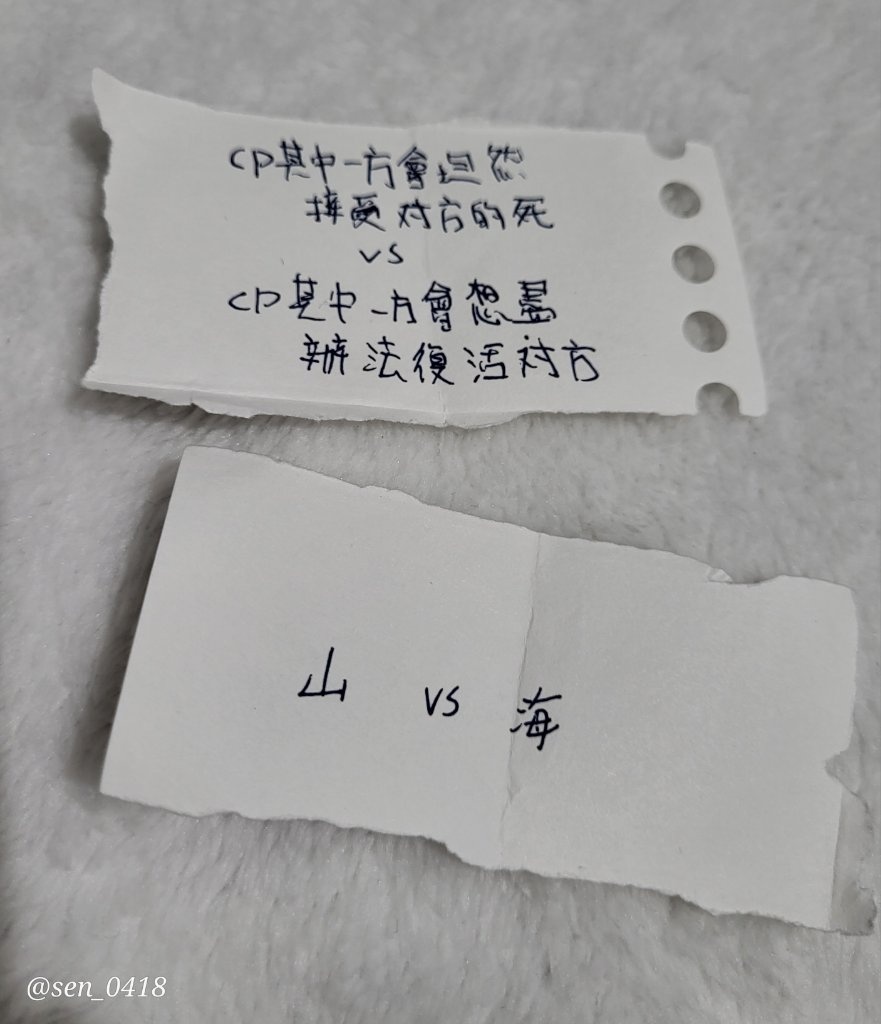 CP其中一方會坦然
接受对方的死
vs
CP其中一方會想盡
辦法復活対方
山 vs 海
@sen_0418